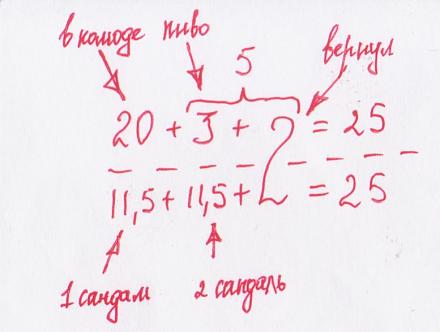 в комоде пиво вернул
5
20 + 3 + 2 = 25
11,5 + 11,5 + 2 = 25
1 сандаль 2 сандаль